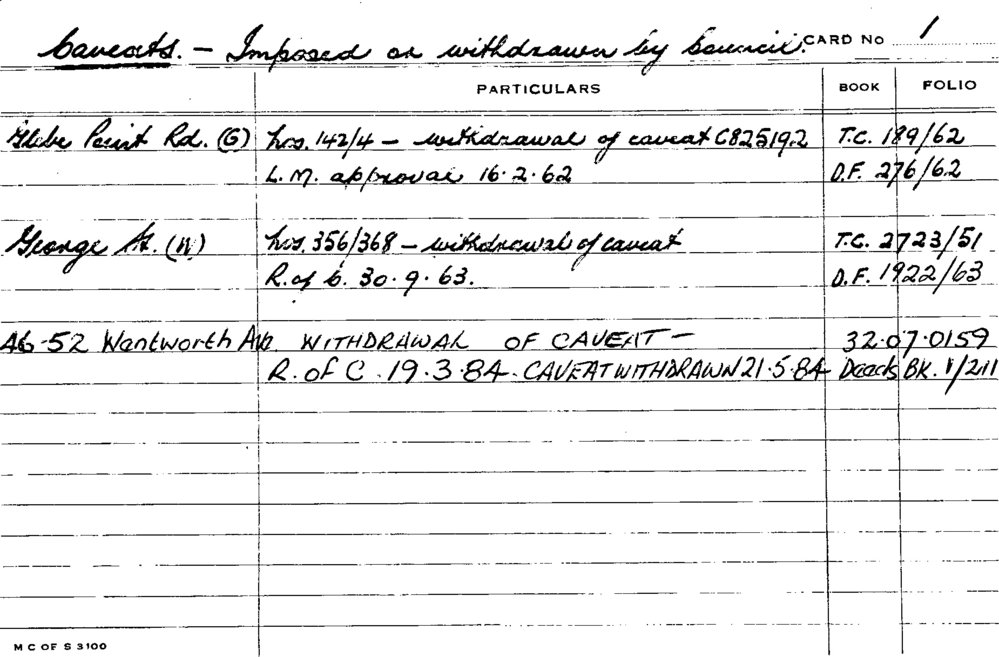 Caveats. - Imposed or withdrawn by Council. CARD No 1
PARTICULARS BOOK FOLIO
Glebe Point Rd. (G) hos. 142/4 - withdrawal of caveat C825192 T.C. 189/62
L.M. approval 16.2.62 D.F. 276/62
George St. (W) hos. 356/368 - withdrawal of caveat T.C. 2723/51
R. of C. 30.9.63. D.F. 1922/63
46-52 Wentworth Ave WITHDRAWAL OF CAVEAT - 32.07.0159
R. of C. 19.3.84. CAVEAT WITHDRAWN 21.5.84 Deeds BK. 1/211
M C OF S 3100